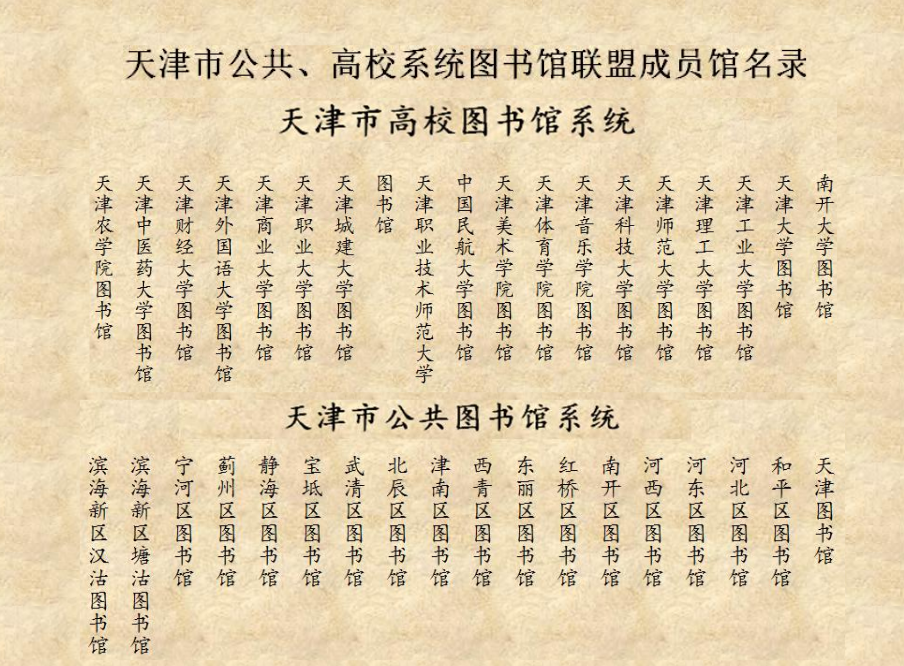 天津市公共、高校系统图书馆联盟成员馆名录
天津市高校图书馆系统
南开大学图书馆
天津大学图书馆
天津工业大学图书馆
天津理工大学图书馆
天津师范大学图书馆
天津科技大学图书馆
天津音乐学院图书馆
天津体育学院图书馆
天津美术学院图书馆
中国民航大学图书馆
天津职业技术师范大学
图书馆
天津城建大学图书馆
天津职业大学图书馆
天津商业大学图书馆
天津外国语大学图书馆
天津财经大学图书馆
天津中医药大学图书馆
天津农学院图书馆
天津市公共图书馆系统
天津图书馆
和平区图书馆
河北区图书馆
河东区图书馆
河西区图书馆
南开区图书馆
红桥区图书馆
东丽区图书馆
西青区图书馆
津南区图书馆
北辰区图书馆
武清区图书馆
宝坻区图书馆
静海区图书馆
蓟州区图书馆
宁河区图书馆
滨海新区塘沽图书馆
滨海新区汉沽图书馆